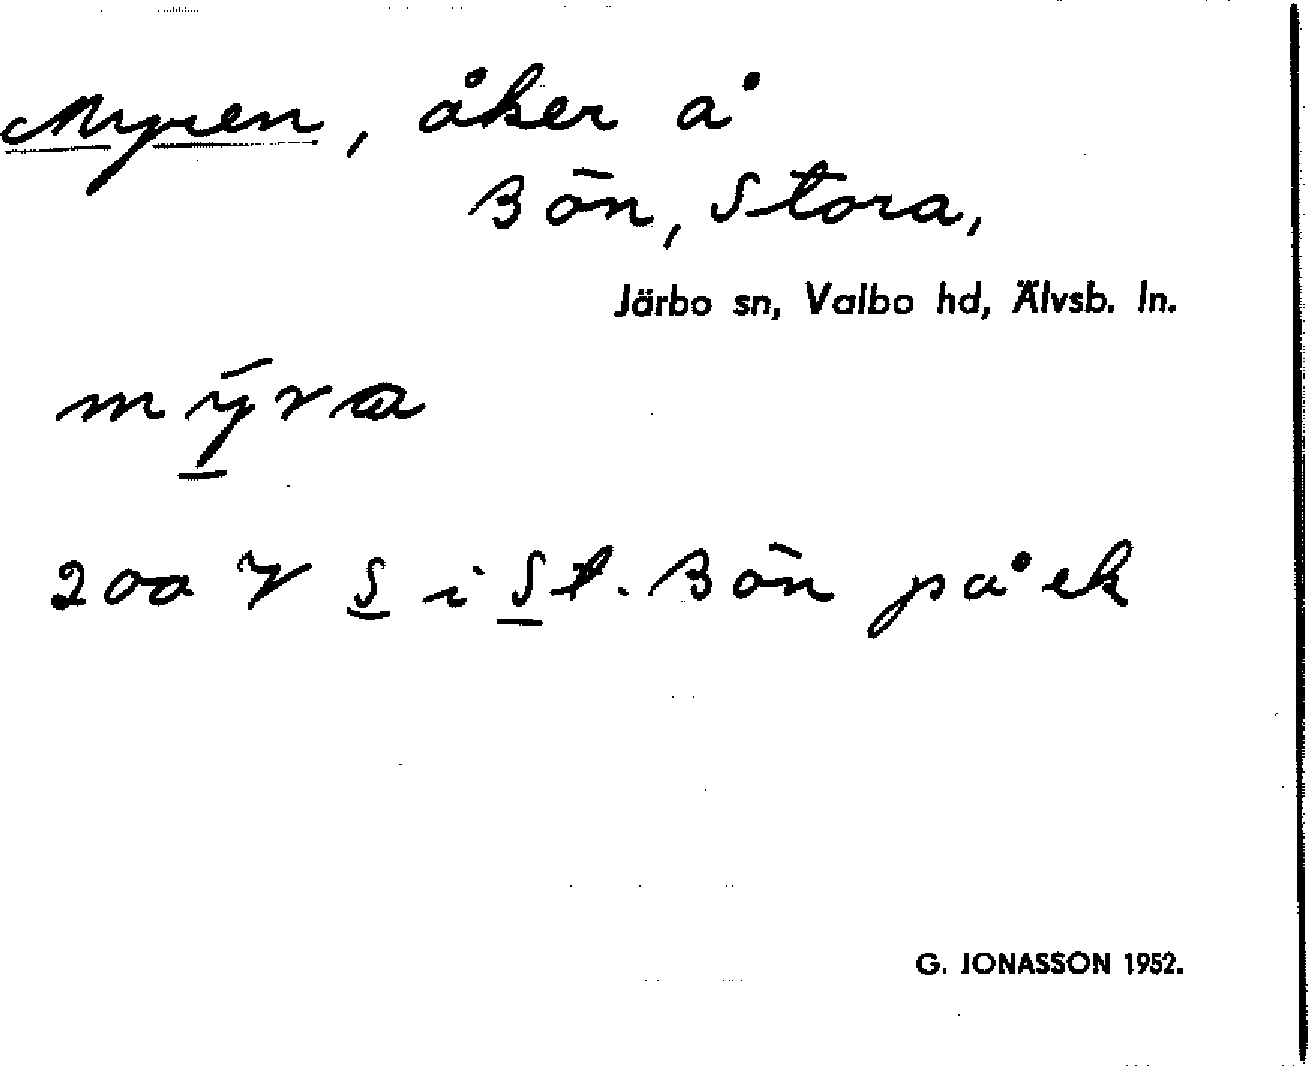 Myren, åker å
Bön, Stora,
Järbo sn, Valbo hd, Älvsb. ln.
mỹra
200 V S i St. Bön på ek
G. JONASSON 1952.